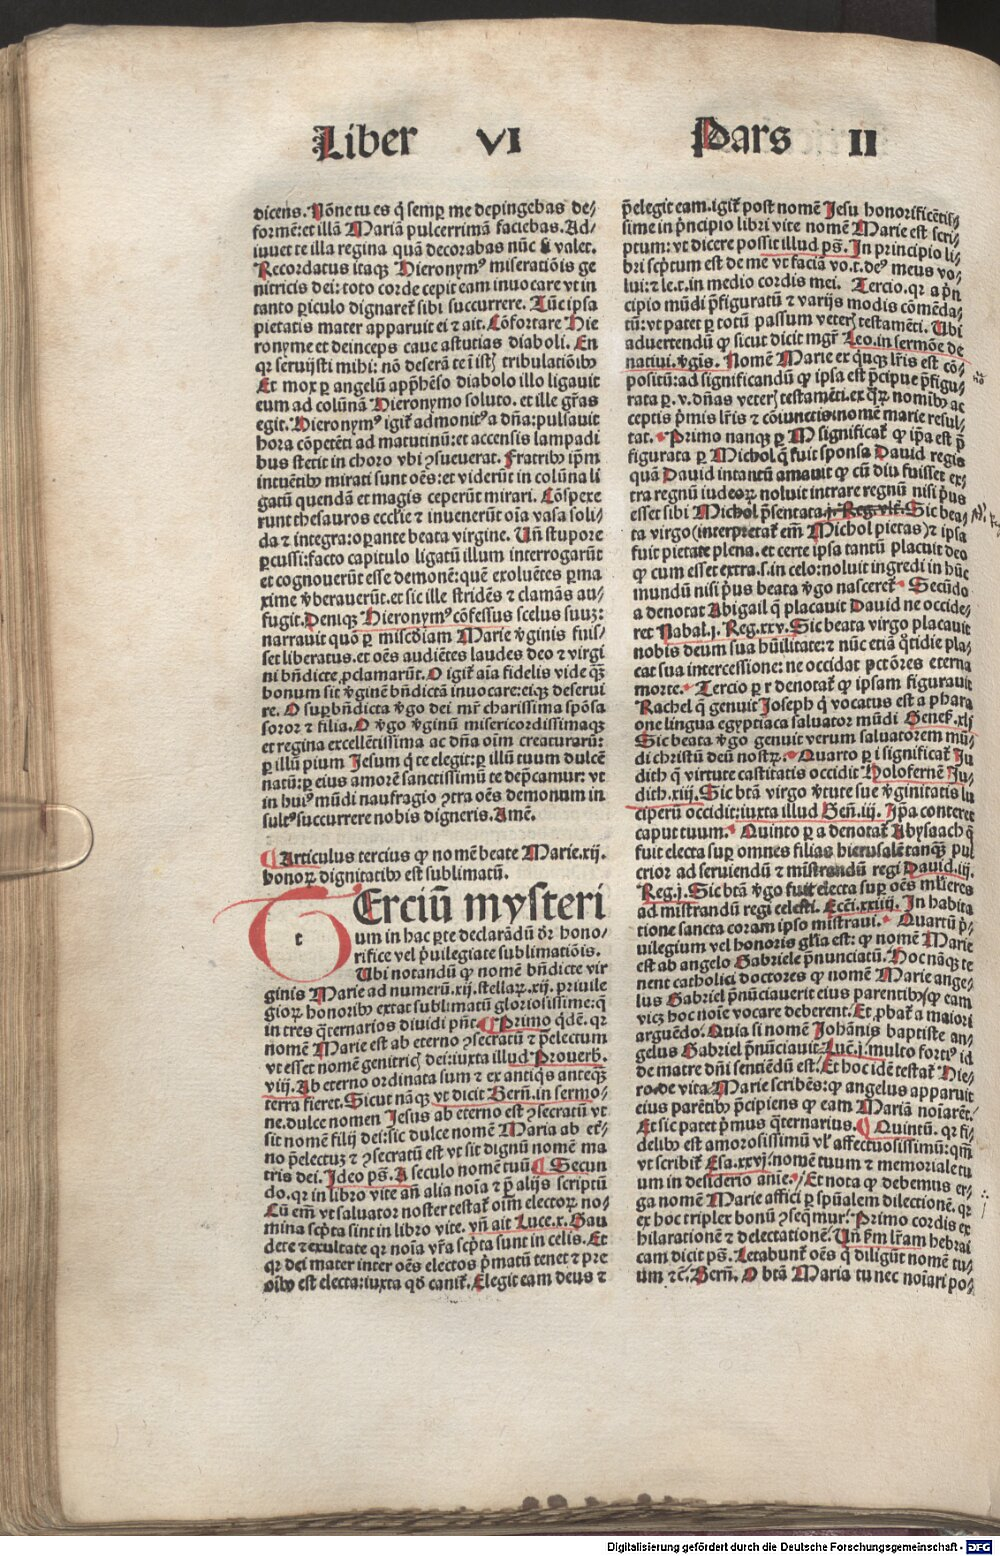 Liber VI
Pars II
dicens. Nōne tu es q̇ semꝑ me depingebas de⸗
formē:et illā Mariā pulcerrimā faciebas. Ad⸗
iuuet te illa regina quā decorabas nūc si valet.
Recordatus itaqꝫ Hieronymꝰ miseratiōis ge
nitricis dei: toto corde cepit eam inuocare vt in
tanto ꝑiculo dignaret̄ sibi succurrere. Tūc ipsa
pietatis mater apparuit ei ⁊ ait. Cōfortare Hie
ronyme et deinceps caue astutias diaboli. En
qꝛ seruijsti mihi: nō deserā te ī istꝭ tribulatiōibꝰ
Et mox ꝑ angelū app̄hēso diabolo illo ligauit
eum ad colūnā Hieronymo soluto. et ille gr̄as
egit. Hieronymꝰ igit̄ admonitꝰ a dn̄a: pulsauit
hora cōpetēti ad matutinū: et accensis lampadi
bus stetit in choro vbi ꝯsueuerat. Fratribꝰ ip̄m
intuētibꝰ mirati sunt oēs: et viderūt in colūna li
gatū quendā et magis ceperūt mirari. Cōspexe
runt thesauros eccl̄ie ⁊ inuenerūt oīa vasa soli⸗
da ⁊ integra: oꝑante beata virgine. Un̄ stupore
ꝑcussi: facto capitulo ligatū illum interrogarūt
et cognouerūt esse demonē: quē exoluētes ꝑma
xime v̄berauerūt. et sic ille stridēs ⁊ clamās au⸗
fugit. Deniqꝫ Hieronymꝰ cōfessus scelus suuꝫ:
narrauit quō ꝑ misc̄diam Marie v̄ginis fuis⸗
set liberatus. et oēs audiētes laudes deo ⁊ virgi
ni bn̄dicte ꝓclamarūt. O igit̄ aīa fidelis vide qꝫ̄
bonum sit v̄ginē bn̄dictā inuocare: eiqꝫ deserui
re. O suꝑbn̄dicta v̄go dei mr̄ charissima spōsa
soror ⁊ filia. O v̄go v̄ginū misericordissimaqꝫ
et regina excellētissima ac dn̄a oīm creaturarū:
ꝑ illū pium Jesum q̇ te elegit: ꝑ illū tuum dulcē
natū: ꝑ eius amorē sanctissimū te dep̄camur: vt
in huiꝰ mūdi naufragio ꝯtra oēs demonum in
sultꝰ succurrere nobis digneris. Amē.
¶ Articulus tercius ꝙ nomē beate Marie. xij.
honoꝝ dignitatibꝰ est sublimatū.
t
TErciū mysteri
um in hac ꝑte declarādū dr̄ hono⸗
rifice vel p̄uilegiate sublimatiōis.
Ubi notandū ꝙ nomē bn̄dicte vir
ginis Marie ad numerū. xij. stellaꝝ. xij. priuile
gioꝝ honoribꝰ extat sublimatū gloriosissime: q̄
in tres qͣternarios diuidi pn̄t. ¶ Primo q̇dē. qꝛ
nomē Marie est ab eterno ꝯsecratū ⁊ p̄electum
vt esset nomē genitricꝭ dei: iuxta illud Prouerb.
viij. Ab eterno ordinata sum ⁊ ex antiq̇s anteqꝫ̄
terra fieret. Sicut nāqꝫ vt dicit Bern̄. in sermo⸗
ne. dulce nomen Jesus ab eterno est ꝯsecratū vt
sit nomē filij dei: sic dulce nomē Maria ab etꝰ⸗
no p̄electuꝫ ⁊ ꝯsecratū est vt sit dignū nomē ma
tris dei. Ideo ps̄. A seculo nomē tuū. ¶ Secun
do. qꝛ in libro vite an̄ alia noīa ⁊ p̄ alijs scriptū
Cū em̄ vt saluator noster testat̄ oīm electoꝝ no⸗
mina sc̄pta sint in libro vite. vn̄ ait Luce. x. Gau
dete ⁊ exultate qꝛ noīa vr̄a sc̄pta sunt in celis. Et
qꝛ dei mater inter oēs electos p̄matū tenet ⁊ pre
oībꝰ est electa: iuxta qd̄ canit̄. Elegit eam deus ⁊
p̄elegit eam. igit̄ post nomē Jesu honorificētis⸗
sime in p̄ncipio libri vite nomē Marie est scri⸗
ptum: vt dicere possit illud ps̄. In principio li⸗
bri sc̄ptum est de me vt faciā vo. t. deꝰ meus vo⸗
lui: ⁊ le. t. in medio cordis mei. Tercio. qꝛ a p̄n
cipio mūdi p̄figuratū ⁊ varijs modis cōmēda⸗
tū: vt patet ꝑ totū passum veterꝭ testamēti. Ubi
aduertendū ꝙ sicut dicit mgr̄ Leo. in sermōe de
natiui. v̄gis. Nomē Marie ex qͥnqꝫ lr̄is est cō⸗
positū: ad significandū ꝙ ipsa est p̄cipue p̄figu⸗
rata ꝑ. v. dn̄as veterꝭ testamēti. ex qͣꝝ nomibꝰ ac
ceptis p̄mis lr̄is ⁊ cōiunctis: nomē marie resul⸗
tat. Primo nanqꝫ ꝑ M significat̄ ꝙ ip̄a est p̄
figurata ꝑ Michol q̄ fuit sponsa Dauid regis
quā Dauid in tantū amauit ꝙ cū diu fuisset ex⸗
tra regnū iudeoꝝ noluit intrare regnū nisi p̄us
esset sibi Michol p̄sentata. j. Reg. vlt̄. Sic bea⸗
ta virgo (interpretat̄ em̄ Michol pietas) ⁊ ipsa
fuit pietate plena. et certe ipsa tantū placuit deo
ꝙ cum esset extra. s. in celo: noluit ingredi in hūc
mundū nisi p̄us beata v̄go nasceret̄. Secūdo
a denotat Abigail q̄ placauit Dauid ne occide⸗
ret Nabal. j. Reg. xxv. Sic beata virgo placauit
nobis deum sua hūilitate: ⁊ nūc etiā qͦtidie pla⸗
cat sua intercessione: ne occidat pctōres eterna
morte. Tercio ꝑ r denotat̄ ꝙ ipsam figurauit
Rachel q̄ genuit Joseph q̇ vocatus est a phara
one lingua egyptiaca saluator mūdi Genef. xlj
Sic beata v̄go genuit verum saluatorem mū⸗
di christū deū nostꝝ. Quarto ꝑ i significat̄ Ju
dith q̄ virtute castitatis occidit Holofernē Ju⸗
dith. xiij. Sic btā virgo v̄tute sue v̄ginitatis lu
ciperū occidit: iuxta illud Gen̄. iij. Ip̄a conteret
caput tuum. Quinto ꝑ a denotat̄ Abysaach q̄
fuit electa suꝑ omnes filias hierusalē tanqꝫ pul
crior ad seruiendū ⁊ mīstrandū regi Dauid. iij.
Reg. j. Sic btā v̄go fuit electa suꝑ oēs mlieres
ad mīstrandū regi celesti. Ecci. xxiiij. In habita
tione sancta coram ipso mīstraui. Quartū p̄⸗
uilegium vel honoris gl̄ia est: ꝙ nomē Marie
est ab angelo Gabriele p̄nunciatū. Hoc nāqꝫ te
nent catholici doctores ꝙ nomē Marie ange⸗
lus Gabriel p̄nūciauerit eius parentibꝰ/ ꝙ eam
vicꝫ hoc noīe vocare deberent. Et ꝓbat̄ a maiori
arguēdo. Quia si nomē Johānis baptiste an⸗
gelus Gabriel p̄nūciauit Luc̄. j. multo fortiꝰ id
de matre dn̄i sentiēdū est. Et hoc idē testat̄ Hie⸗
ro. de vita Marie scribēs: ꝙ angelus apparuit
eius parētibꝰ p̄cipiens ꝙ eam Mariā noīarēt.
Et sic patet p̄mus qͣternarius. ¶ Quintū. qꝛ fi⸗
delibꝰ est amorosissimū vl̓ affectuosissimū: qm̄
vt scribit̄ Esa. xxvj. nomē tuum ⁊ memoriale tu
um in desiderio anīe. Et nota ꝙ debemus er⸗
ga nomē Marie affici ꝑ spūalem dilectionē. qꝛ
ex hoc triplex bonū ꝯseqͥmur. Primo cordis ex
hilarationē ⁊ delectationē. Un̄ p̄m lr̄am hebrai
cam dicit ps̄. Letabunt̄ oēs q̇ diligūt nomē tu⸗
um ⁊c̄. Bern̄. O btā Maria tu nec noīari po⸗
Digitalisierung gefördert durch die Deutsche Forschungsgemeinschaft - DFG